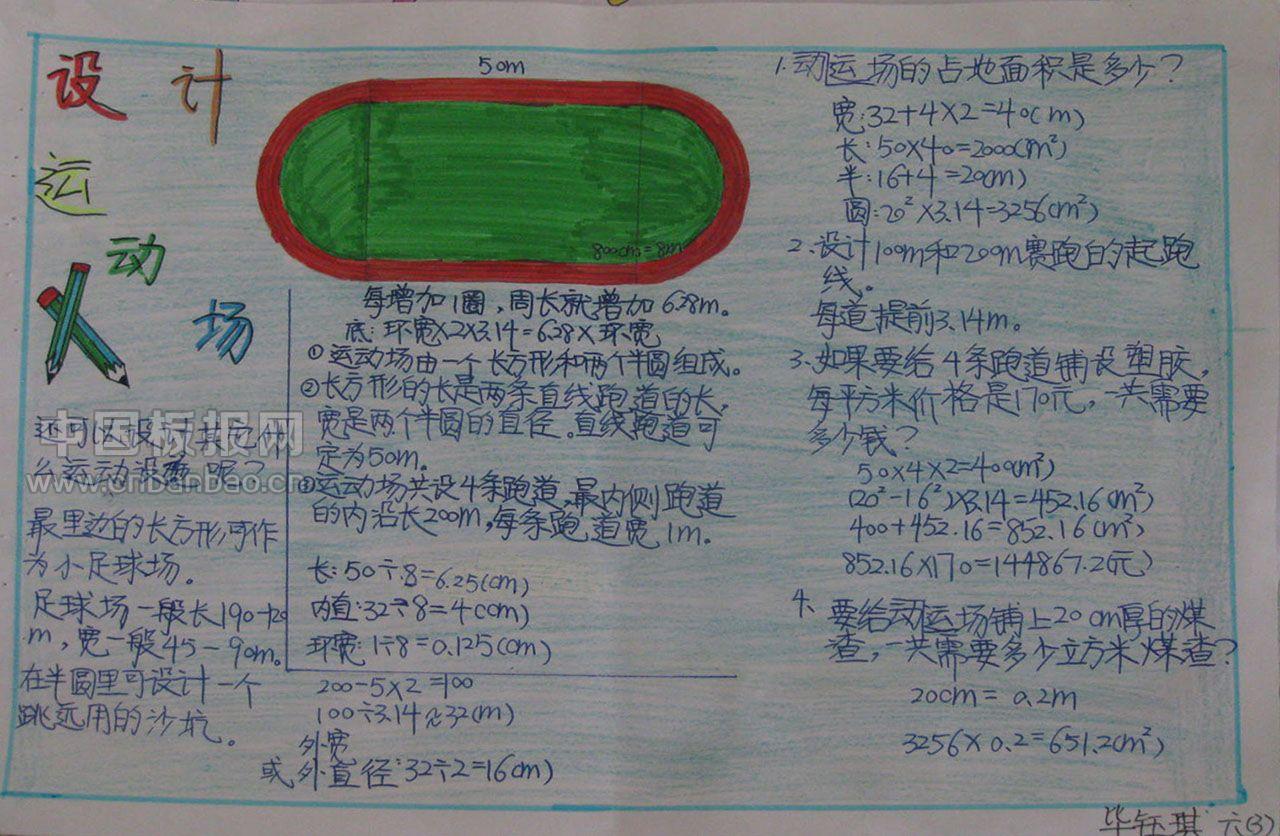 设计
运
动
场
50m
800cm=8m
每增加1圈，周长就增加6.28m。
底：环宽×2×3.14=6.28×环宽
①运动场由一个长方形和两个半圆组成。
②长方形的长是两条直线跑道的长，
宽是两个半圆的直径。直线跑道可
定为50m。
③运动场共设4条跑道，最内侧跑道
的内沿长200m，每条跑道宽1m。
长：50÷8=6.25(cm)
内直：32÷8=4(cm)
环宽：1÷8=0.125(cm)
200-5×2=100
100÷3.14≈32(m)
外宽
或外直径：32÷2=16(m)
还可以设计其它什
么运动设施呢？
最里边的长方形可作
为小足球场。
足球场一般长190-120
m，宽一般45-90m。
在半圆里可设计一个
跳远用的沙坑。
1.动运场的占地面积是多少？
宽：32+4×2=40(m)
长：50×40=2000(m²)
半：16+4=20(m)
圆：20²×3.14=3256(m²)
2、设计100m和200m赛跑的起跑
线。
每道提前3.14m。
3、如果要给4条跑道铺设塑胶，
每平方米价格是170元，一共需要
多少钱？
50×4×2=400(m²)
(20²-16²)×3.14=452.16(m²)
400+452.16=852.16(m²)
852.16×170=144867.2(元)
4、要给动运场铺上20cm厚的煤
查，一共需要多少立方米煤查？
20cm=0.2m
3256×0.2=651.2(m²)
毕钰琪 六(3)
中国板报网
www.cnbanbao.cn